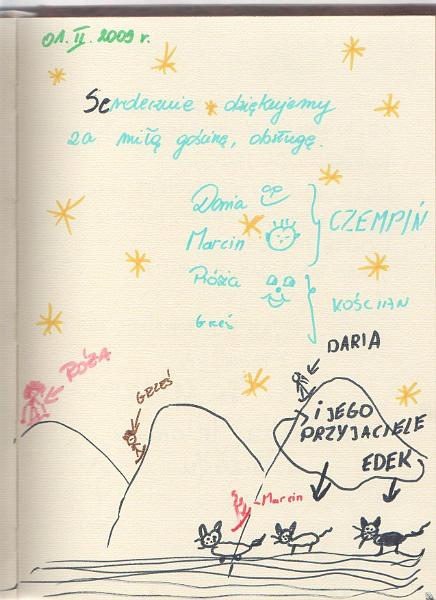 01. II. 2009 r.
Serdecznie dziękujemy
za miłą gościnę, obsługę.
Daria
Marcin
CZEMPIŃ
Rózia
Grześ
KOŚCIAN
DARIA
RÓŻA
GRZEŚ
I JEGO
PRZYJACIELE
EDEK
Marcin